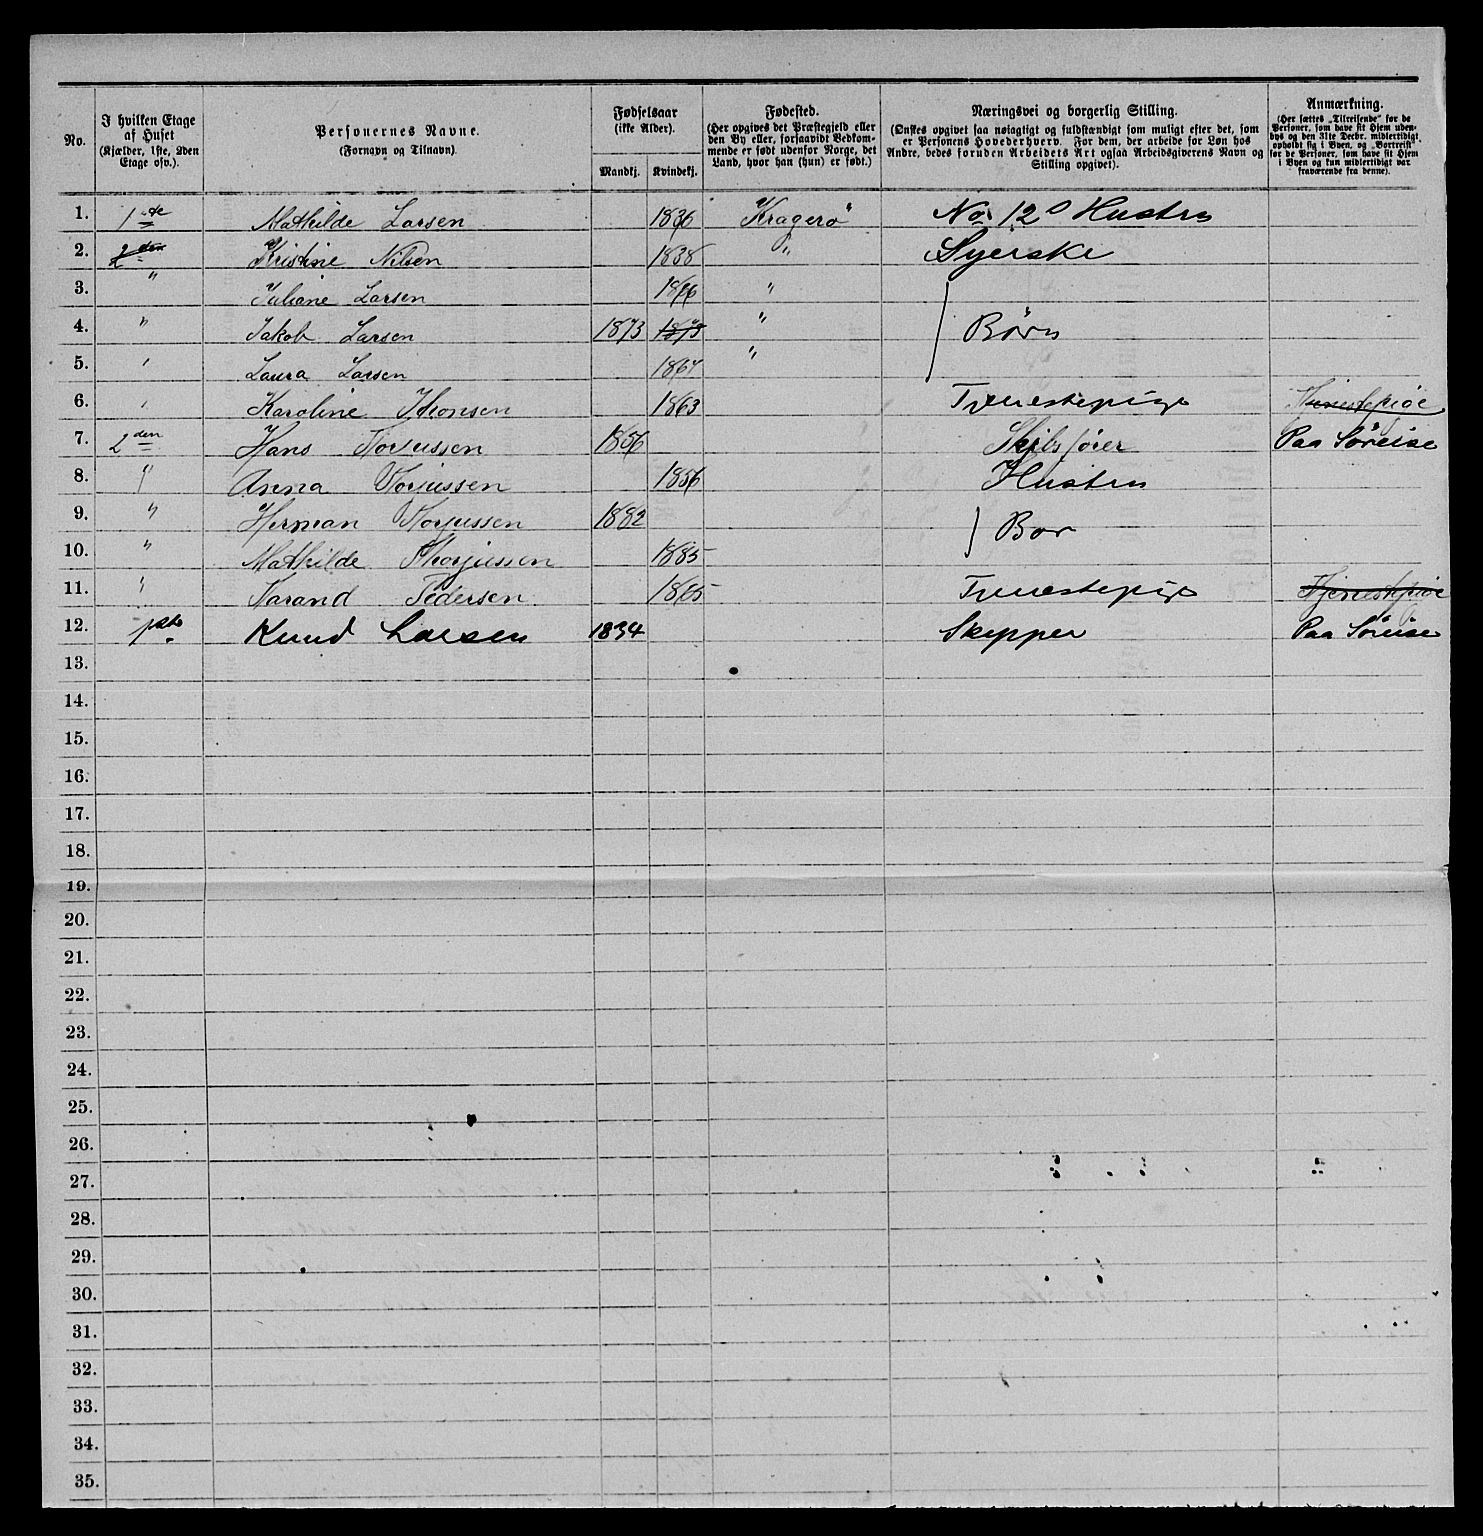 No.
I hvilken Etage af Huset (Kjælder, 1ste, 2den Etage osv.).
Personernes Navne. (Fornavn og Tilnavn).
Fødselsaar (ikke Alder).
Mandkj. Kvindekj.
Fødested. (Her opgives det Præstegjeld eller den By eller, forsaavidt Vedkommende er født udenfor Norge, det Land, hvor han (hun) er født.)
Næringsvei og borgerlig Stilling. (Ønskes opgivet saa nøiagtigt og fuldstændigt som muligt efter det, som er Personens Hovederhverv. For dem, der arbeide for Løn hos Andre, bedes foruden Arbeidets Art ogsaa Arbeidsgiverens Navn og Stilling opgivet).
Anmærkning. (Her sættes „Tilreisende“ for de Personer, som have sit Hjem udenbys og den 31te Decbr. midlertidigt opholdt sig i Byen, og „Bortreist“ for de Personer, som have sit Hjem i Byen og kun midlertidigt var fraværende fra denne).
1. 1ste Mathilde Larsen 1836 "Kragerø" No 12s Hustru
2. 2den Kristine Nilsen 1838 " Syerske
3. " Juliane Larsen 1866 "
4. " Jakob Larsen 1873 1873 " Børn
5. " Laura Larsen 1864 "
6. " Karoline Thonsen 1863 Tjenestepige
7. 2den Hans Torjussen 1856 Skibsfører Paa Søreise
8. " Anna Torjussen 1856 Hustru
9. " Herman Torjussen 1882 Bør
10. " Mathilde Thorjussen 1885
11. " Karand Pedersen 1865 Tjenestepige
12. 1ste Knud Larsen 1834 Skipper Paa Søreise
13.
14.
15.
16.
17.
18.
19.
20.
21.
22.
23.
24.
25.
26.
27.
28.
29.
30.
31.
32.
33.
34.
35.